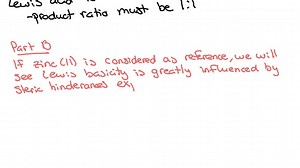 Lewis acid is
-product ratio must be 1:1
Part B
If zinc(II) is considered as reference, we will
see Lewis basicity is greatly influenced by
steric hinderances ex,